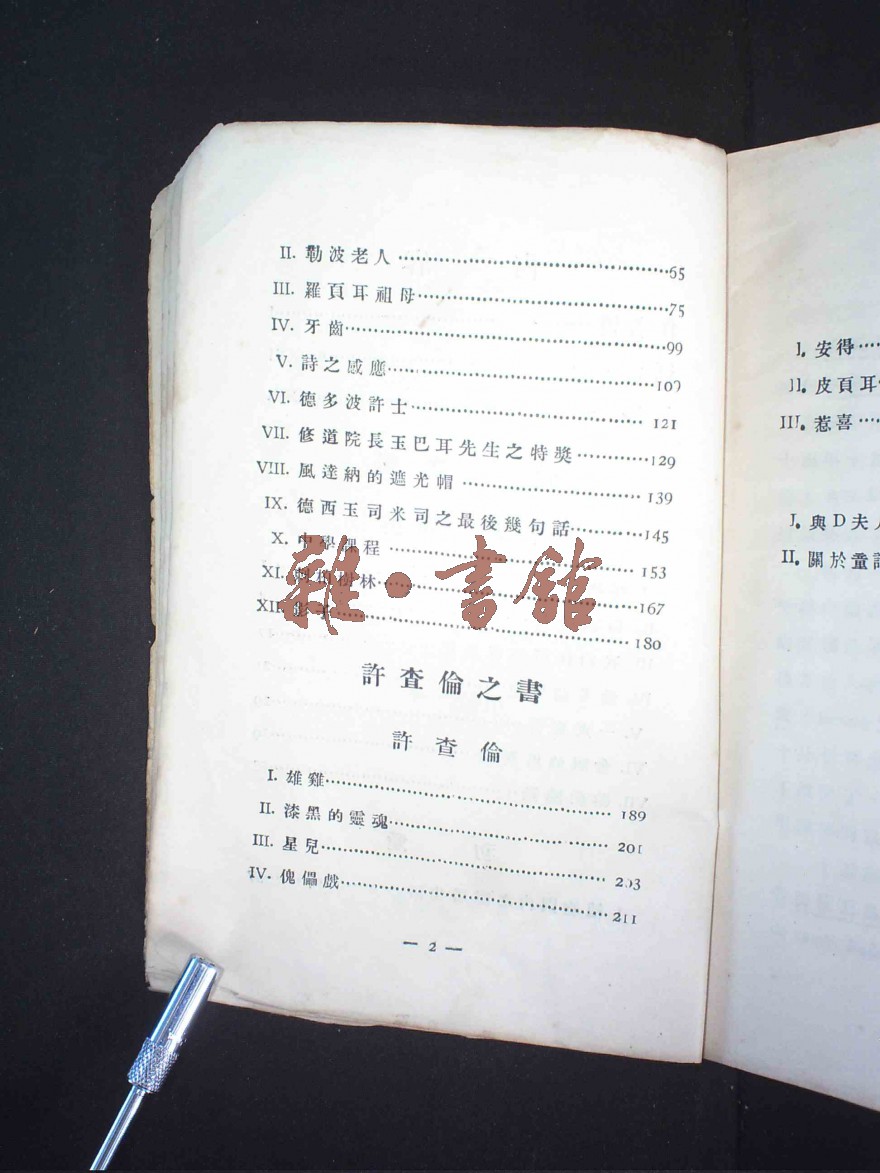 II. 勒波老人 65
III. 羅頁耳祖母 75
IV. 牙齒 99
V. 詩之感應 109
VI. 德多波許士 121
VII. 修道院長玉巴耳先生之特獎 129
VIII. 風達納的遮光帽 139
IX. 德西玉司米司之最後幾句話 145
X. 中學課程 153
XI. 樹林 167
XII. 180
許查倫之書
許查倫
I. 雄雞 189
II. 漆黑的靈魂 201
III. 星兒 203
IV. 傀儡戲 211
— 2 —
雜·書館
I. 安得
II. 皮頁耳
III. 惹喜
I. 與D夫人
II. 關於童話